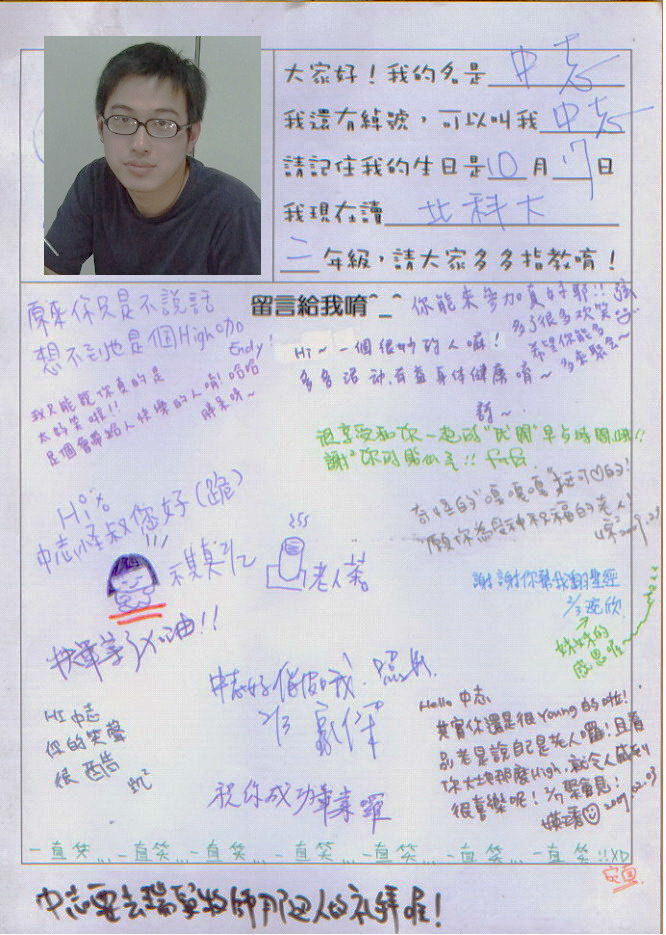 大家好！我的名是 中志
我還有綽號，可以叫我 中志
請記住我的生日是 10 月 17 日
我現在讀 北科大
三 年級，請大家多多指教唷！
留言給我唷^_^
原來你只是不說話
想不到也是個High咖
Endy!
我只能說你真的是
太好笑啦!!
是個會帶給人快樂的人唷!哈哈
你能來參加真好耶!!
多了很多歡笑
希望你能多
多來聚會~
Hi~ 一個很妙的人嘛!
多多活动.有益身体健康唷~
很享受和你一起
早点時間
謝²你
奇怪的"嘎嘎嘎"挺可♡的!
願你為受神祝福的老人!
2009.2.3
Hi
中志怪叔您好(跪)
255
老人茶
謝謝你幫我翻聖經
2/3
妹妹的
感恩喔~
快畢業了加油!!
中志好俏皮哦.
2/3 家傑
祝你成功畢業囉
Hi 中志
你的笑聲
很酷
凱²
Hello 中志
其實你還是很Young的啦!
品老是說自己是老人囉!且看
你大地那麼High,就令人感到
很喜樂呢! 2/7聚會見!
2009.02.03
一直笑...一直笑...一直笑...一直笑...一直笑...一直笑...一直笑!!XD
中志要去瑞賢牧師那邊人的礼拜喔!